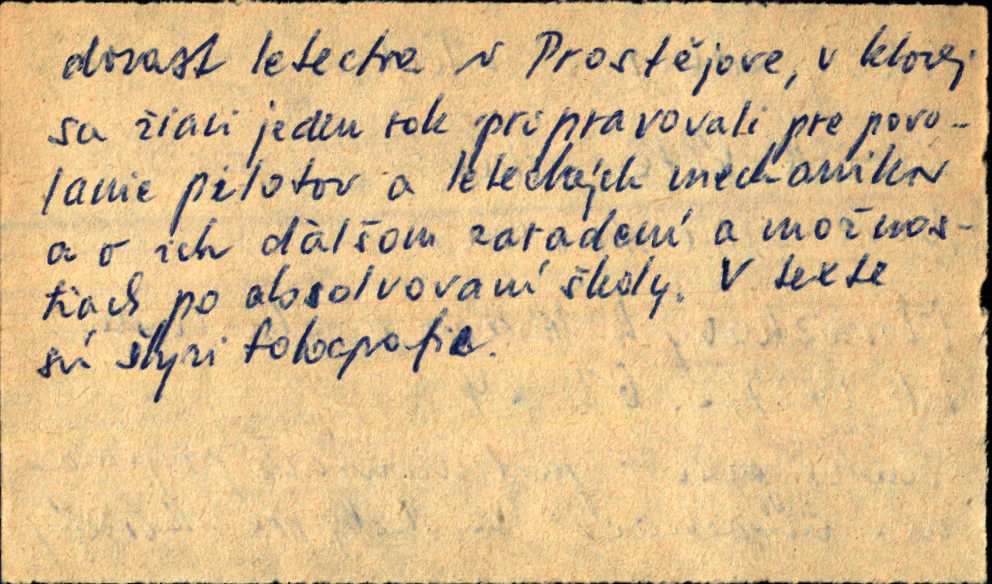 dorast letectva v Prostějove, v ktorej
sa žiaci jeden rok pripravovali pre povo-
lanie pilotov a leteckých mechanikov
a o ich ďalšom zaradení a možnos-
tiach po absolvovaní školy. V texte
sú štyri fotografie.